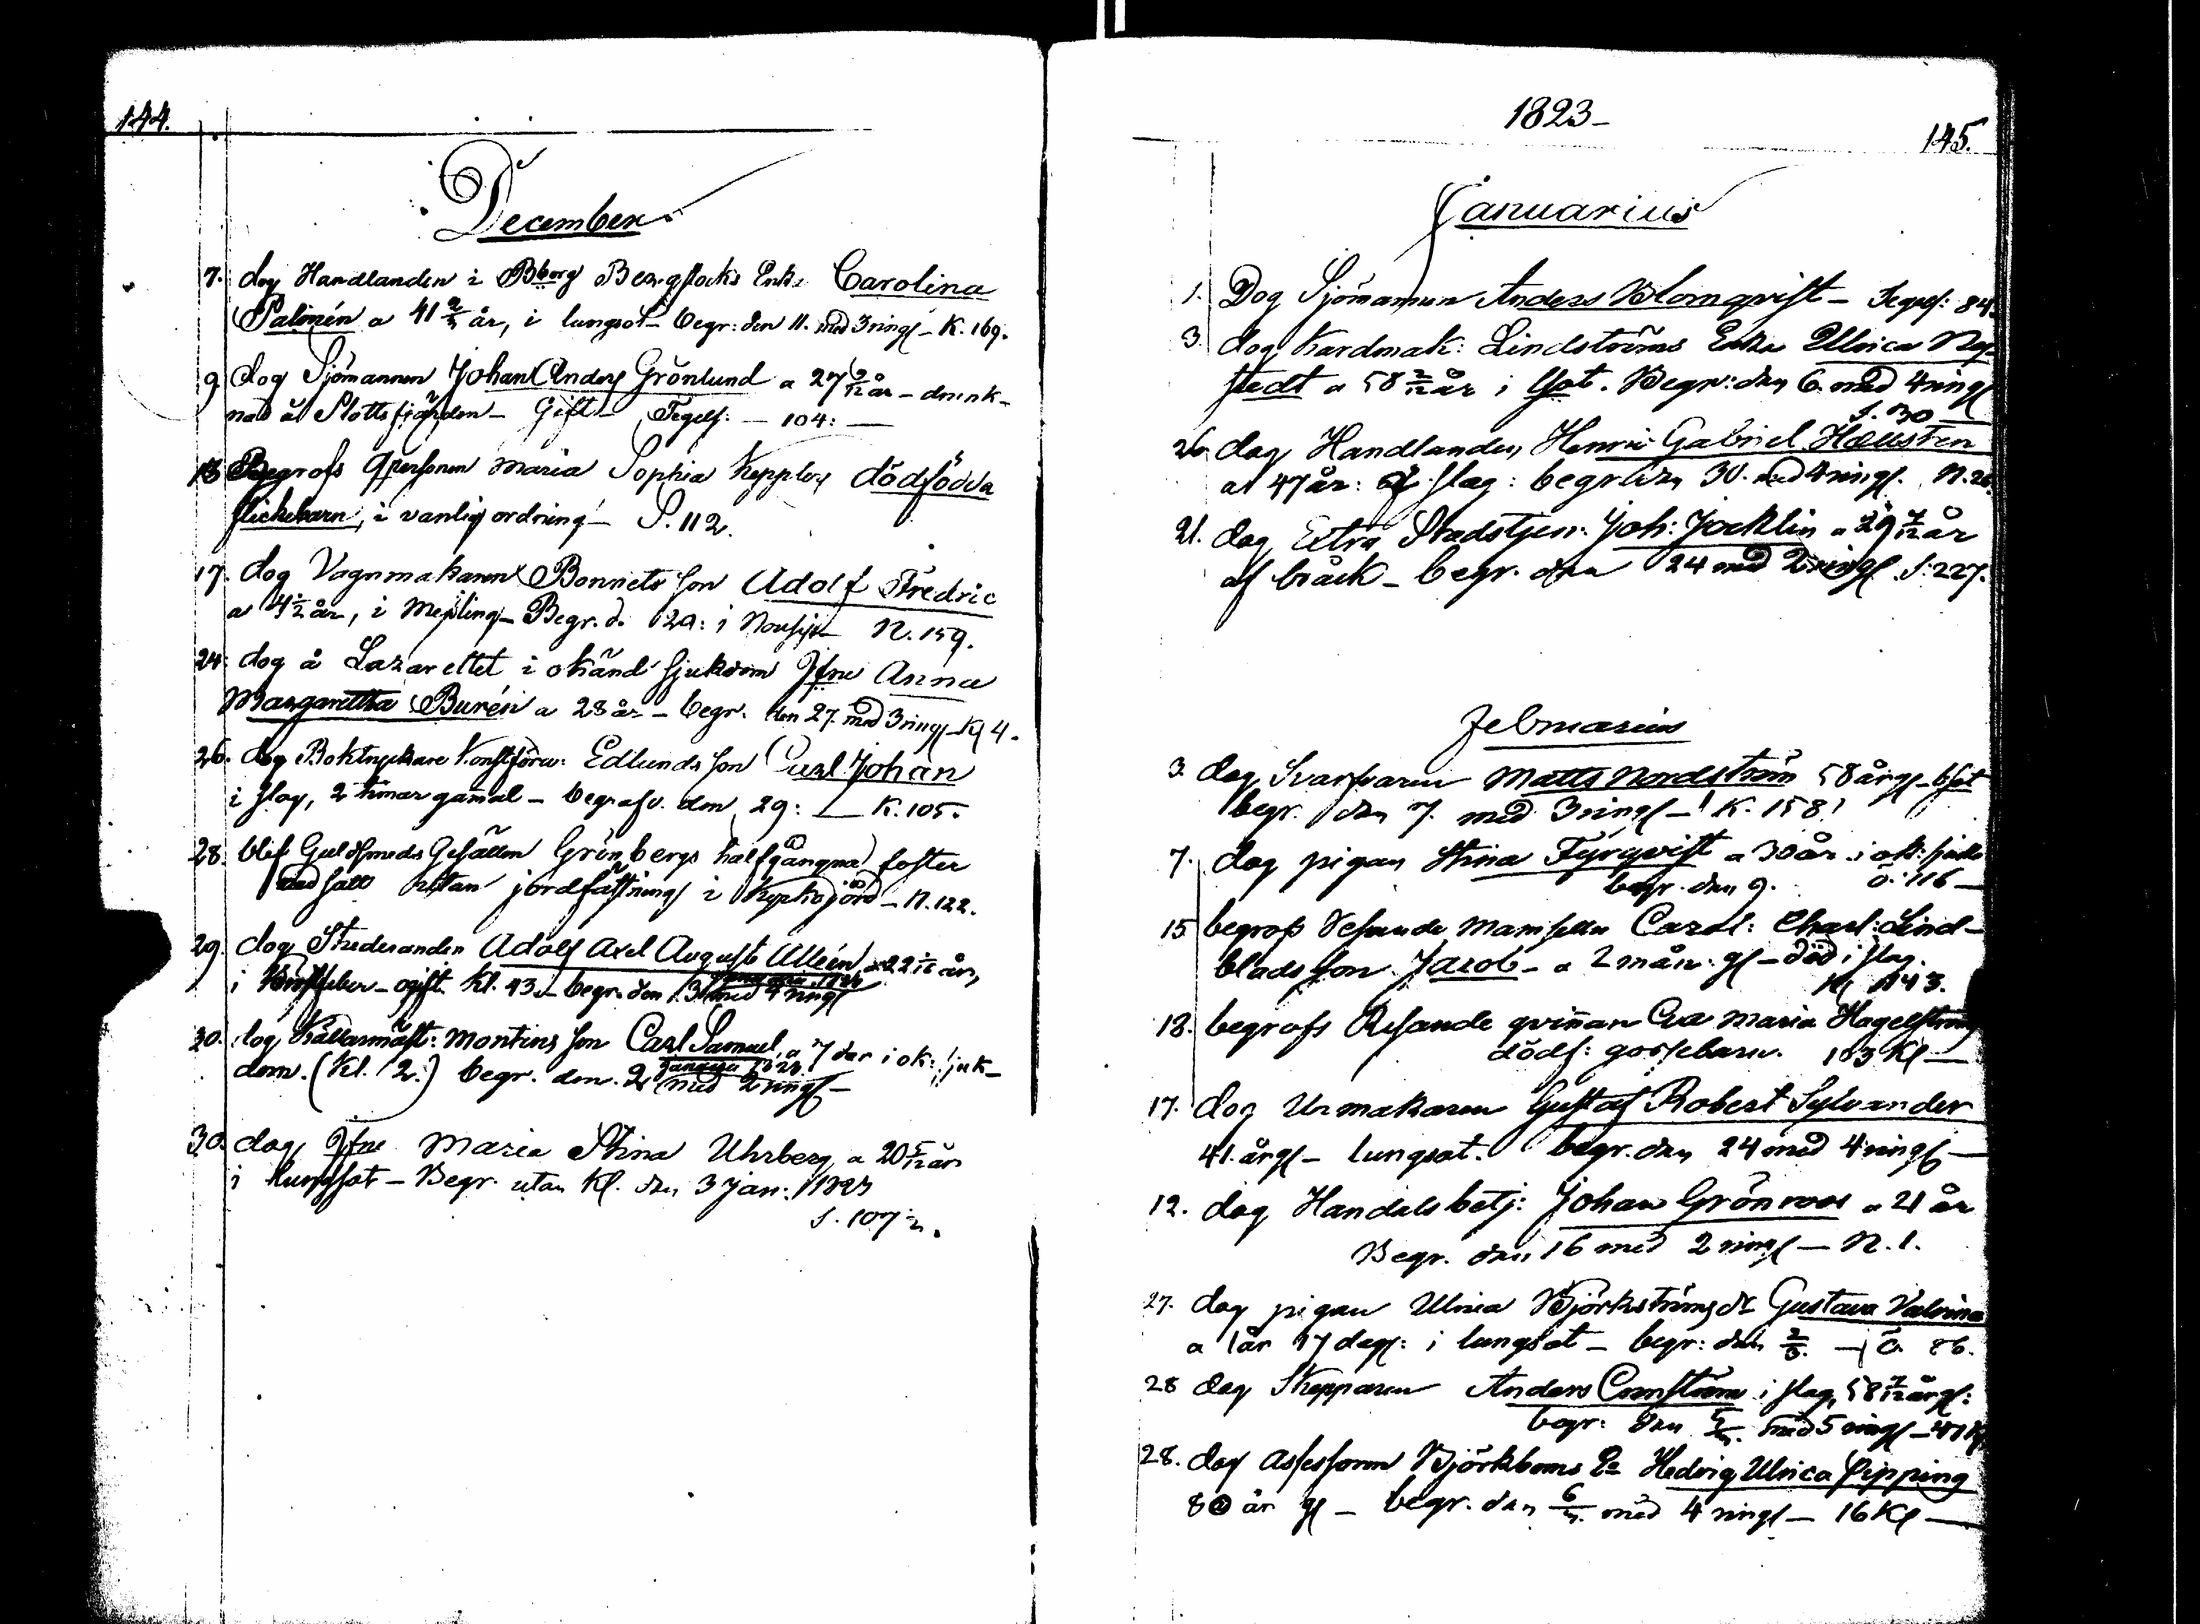 144.
December
7. dog Handlanden i Bborg Bergstocks Enka Carolina
Palinén a 41 2/3 år, i lungsot - begr: den 11. med 3 ring - K. 169.
9 dog Sjömannen Johan Anders Grönlund a 27 9/12 år - drunk-
nad å Slottsfjärden - Gift - Tegels: - 104: -
13 Begrofs Qpersonen Maria Sophia Kepplers dödfödda
flickebarn, i vanlig ordning - S. 112.
17. dog Vagnmakaren Bonnets son Adolf Fredric
a 4 1/2 år, i Messling - Begr. d. 29: i N. 159.
24: dog å Lazarettet i okänd sjukdom Jfru Anna
Margaretha Burén a 28 år - begr. den 27. med 3 ring - Kl 4.
26. dog Boktryckare Konstförv: Edlunds son Carl Johan
i slag, 2 timar gammal - begrafv. den 29: - K. 105.
28. blef Guldsmeds Gesällen Grönbergs halfgångna foster
nedsatt utan jordfästning i Kyrkojord - N. 122.
29. dog Studeranden Adolf Axel August Alléen a 22 år,
i - ogift. Kl. 43. - begr. den 3 Januarii 1823 med 4 ring
30. dog Källarmäst: Montins son Carl Samuel, a 7 dar i ok: sjuk-
dom. (Kl. 2.) begr. den 2 Januarii 1823 med 2 ring -
30. dog Jfru Maria Stina Uhrberg a 20 5/12 år
i lungsot - Begr. utan Kl. den 3 Jan: 1823
S. 107 1/2.
1823 -
145.
Januarius
1. Dog Sjömannen Anders Blomqvist - Tegels: 84.
3. dog Kardmak: Lindströms Enka Ulrica Ny-
stedt a 58 2/12 år i Begr: den 6. med 4 ring
S. 30 -
26. dog Handlanden Henric Gabriel Hællsten
a 47 år: af slag: begr. den 30. med 4 ring. N. 26.
21. dog Extra Stadstjen: Joh: Jocklin a 29 7/12 år
af bråck - begr. den 24 med 2 ring S: 227.
Februarius
3. dog Svarfvaren Matts Nordström 58 år g -
begr. den 7. med 3 ring - K. 158
7. dog pigan Stina Fyrqvist a 30 år i ok:
begr. den 9. Ö. 116 -
15 begrofs Resande Mamselln Carol: Charl: Lind-
blads son Jacob - a 2 mån. g - död i slag.
Kl 143.
18. begrofs Resande qvinnan Eva Maria Hagelströms
dödf: gossebarn. 103 Kl -
17. dog Urmakaren Gustaf Robert Sylvander
41. år g - lungsot. begr. den 24 med 4 ring -
12. dog Handels betj: Johan Grönroos a 21 år
Begr. den 16 med 2 ring - N. 1.
27. dog pigan Ulrica Björkströms dr Gustava Valvina
a 1 år 17 dag: i lungsot - begr: den 2/3. - Ö. 86.
28 dog Skepparen Anders Cornström i slag, 58 7/12 år g:
begr: den 5/3. med 5 ring - 41 Kl
28. dog Assessoren Björkboms Ea Hedvig Ulrica Pipping
80 år g - begr. den 6/3. med 4 ring - 16 Kl -